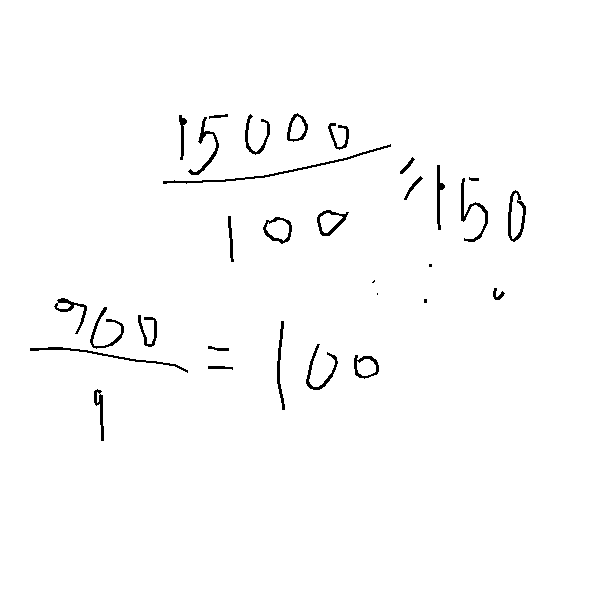 15000/100 = 150
900/9 = 100